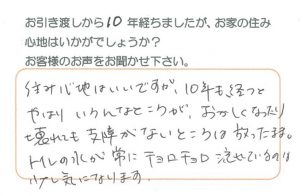 お引き渡しから10年経ちましたが、お家の住み
心地はいかがでしょうか？
お客様のお声をお聞かせ下さい。
住み心地はいいですが、10年も経つと
やはりいろんなところが、おかしくなったり
壊れても支障がないところは放ったまま。
トイレの水が常にチョロチョロ流れているのは
少し気になります。